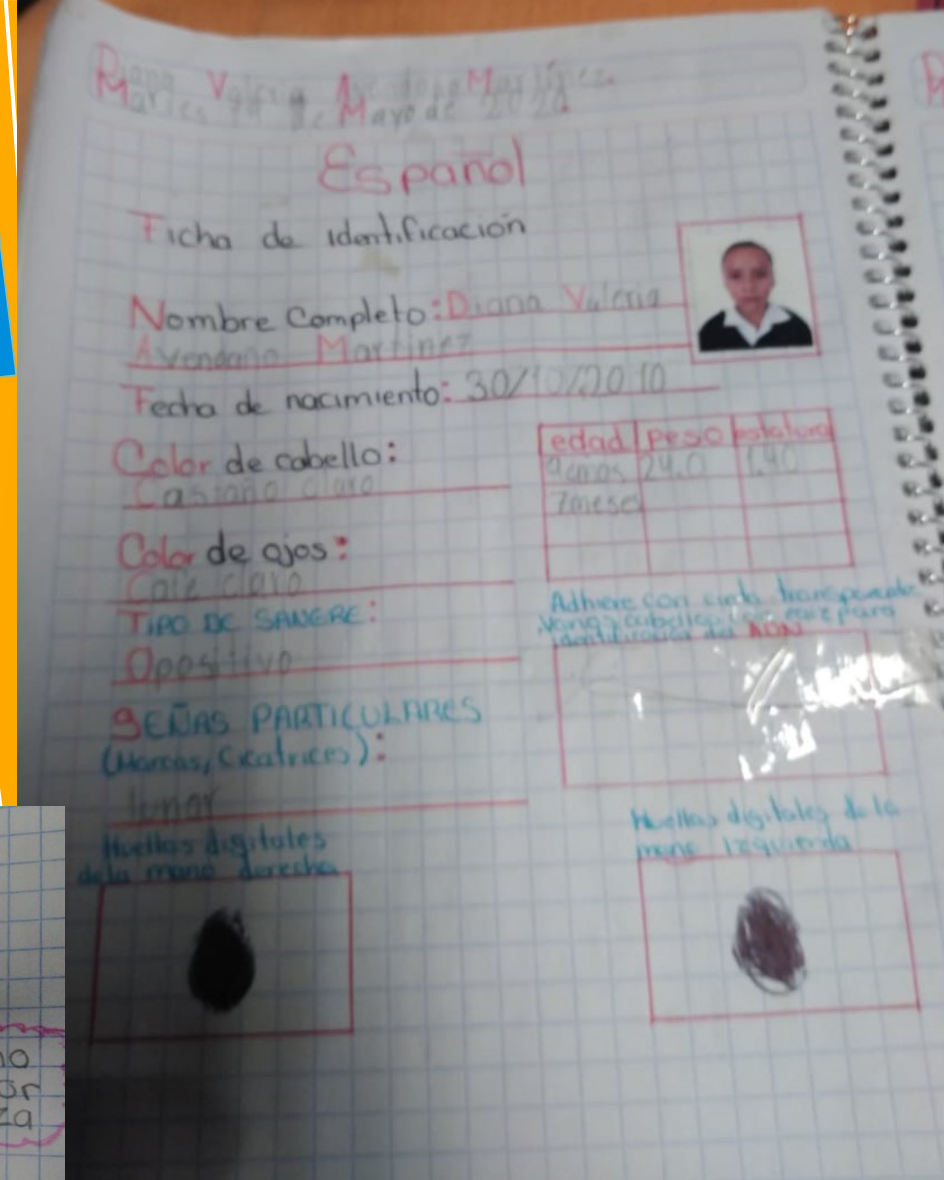 Diana Valeria Avendaño Martínez.
Martes 19 de Mayo de 2020.
Español
Ficha de identificación
Nombre Completo: Diana Valeria
Avendaño Martinez
Fecha de nacimiento: 30/10/2010
Color de cabello:
Castaño claro
edad peso estatura
9 años 24.0 1.40
7 mese
Color de ojos:
Cafe claro
TIPO DE SANGRE:
O positivo
Adhiere con cinta transparente
varios cabellos
identificación del ADN
SEÑAS PARTICULARES
(Marcas, Cicatrices):
lunar
Huellas digitales
de la mano derecha
Huellas digitales de la
mano izquierda